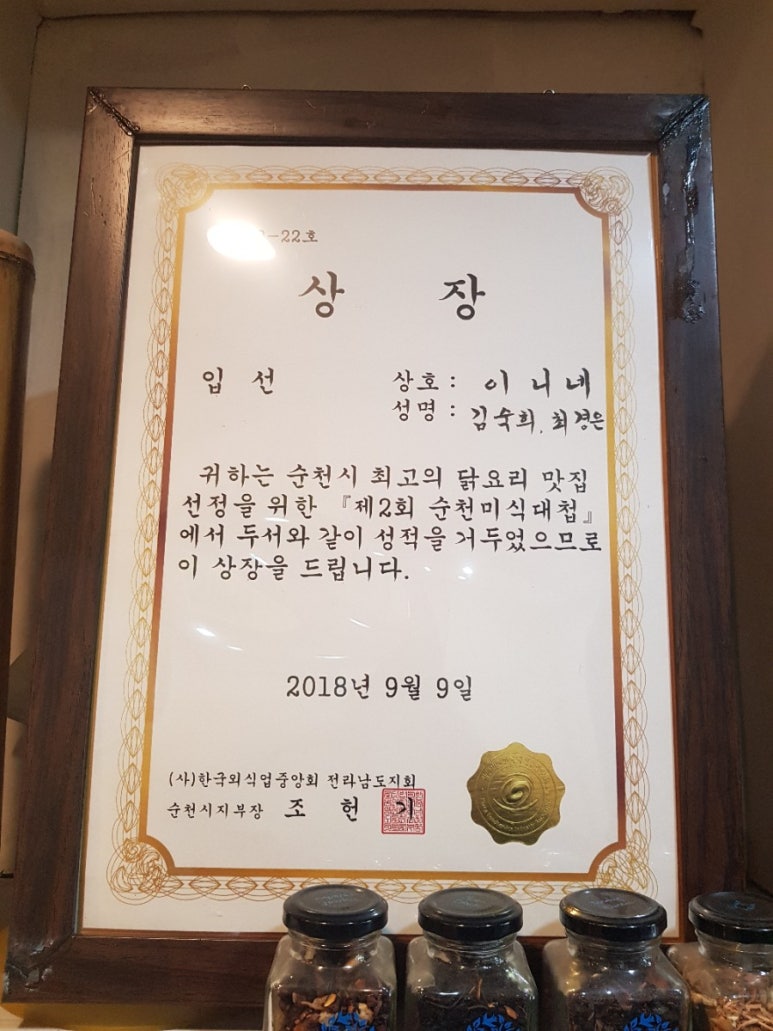 -22호
상 장
입 선
상호 : 이 니 네
성명 : 김숙희, 최경은
귀하는 순천시 최고의 닭요리 맛집
선정을 위한 『제2회 순천미식대첩』
에서 두서와 같이 성적을 거두었으므로
이 상장을 드립니다.
2018년 9월 9일
(사)한국외식업중앙회 전라남도지회
순천시지부장 조 헌 기